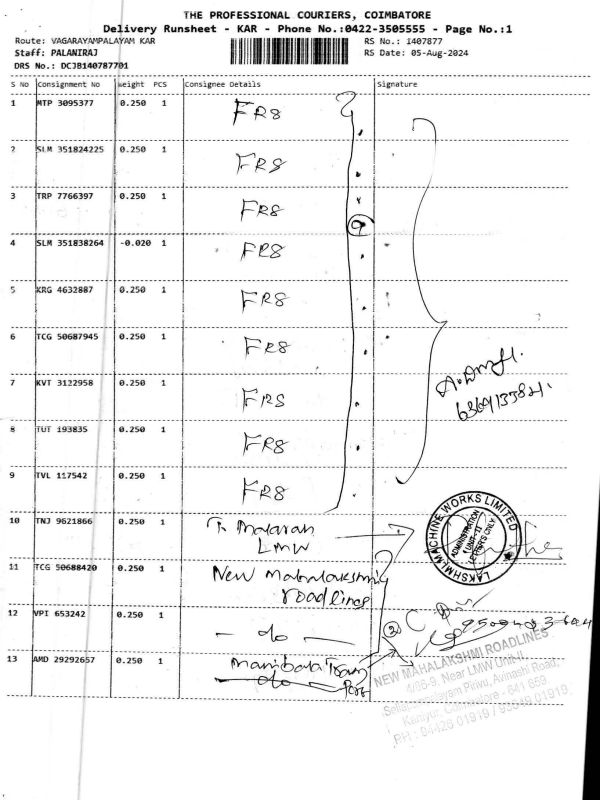 THE PROFESSIONAL COURIERS, COIMBATORE
Delivery Runsheet - KAR - Phone No.:0422-3505555 - Page No.:1
Route: VAGARAYAMPALAYAM KAR
RS No.: 1407877
Staff: PALANIRAJ
RS Date: 05-Aug-2024
DRS No.: DCJB140787701
S No Consignment No Weight PCS Consignee Details Signature
1 MTP 3095377 0.250 1 FR8
2 SLM 351824225 0.250 1 FR8
3 TRP 7766397 0.250 1 FR8
9
4 SLM 351838264 -0.020 1 FR8
5 KRG 4632887 0.250 1 FR8
6 TCG 50687945 0.250 1 FR8
7 KVT 3122958 0.250 1 FR8
8 TUT 193835 0.250 1 FR8
9 TVL 117542 0.250 1 FR8
LAKSHMI MACHINE WORKS LIMITED
ADMINISTRATION
UNIT-II
LETTERS ONLY
10 TNJ 9621866 0.250 1
LMW
11 TCG 50688420 0.250 1 New Mahalakshmi
roadlines
12 VPI 653242 0.250 1 - do -
2
13 AMD 29292657 0.250 1
do
NEW MAHALAKSHMI ROADLINES
4/96-9, Near LMW Unit-II,
Pirivu, Avinashi Road,
Kaniyur, Coimbatore - 641 659